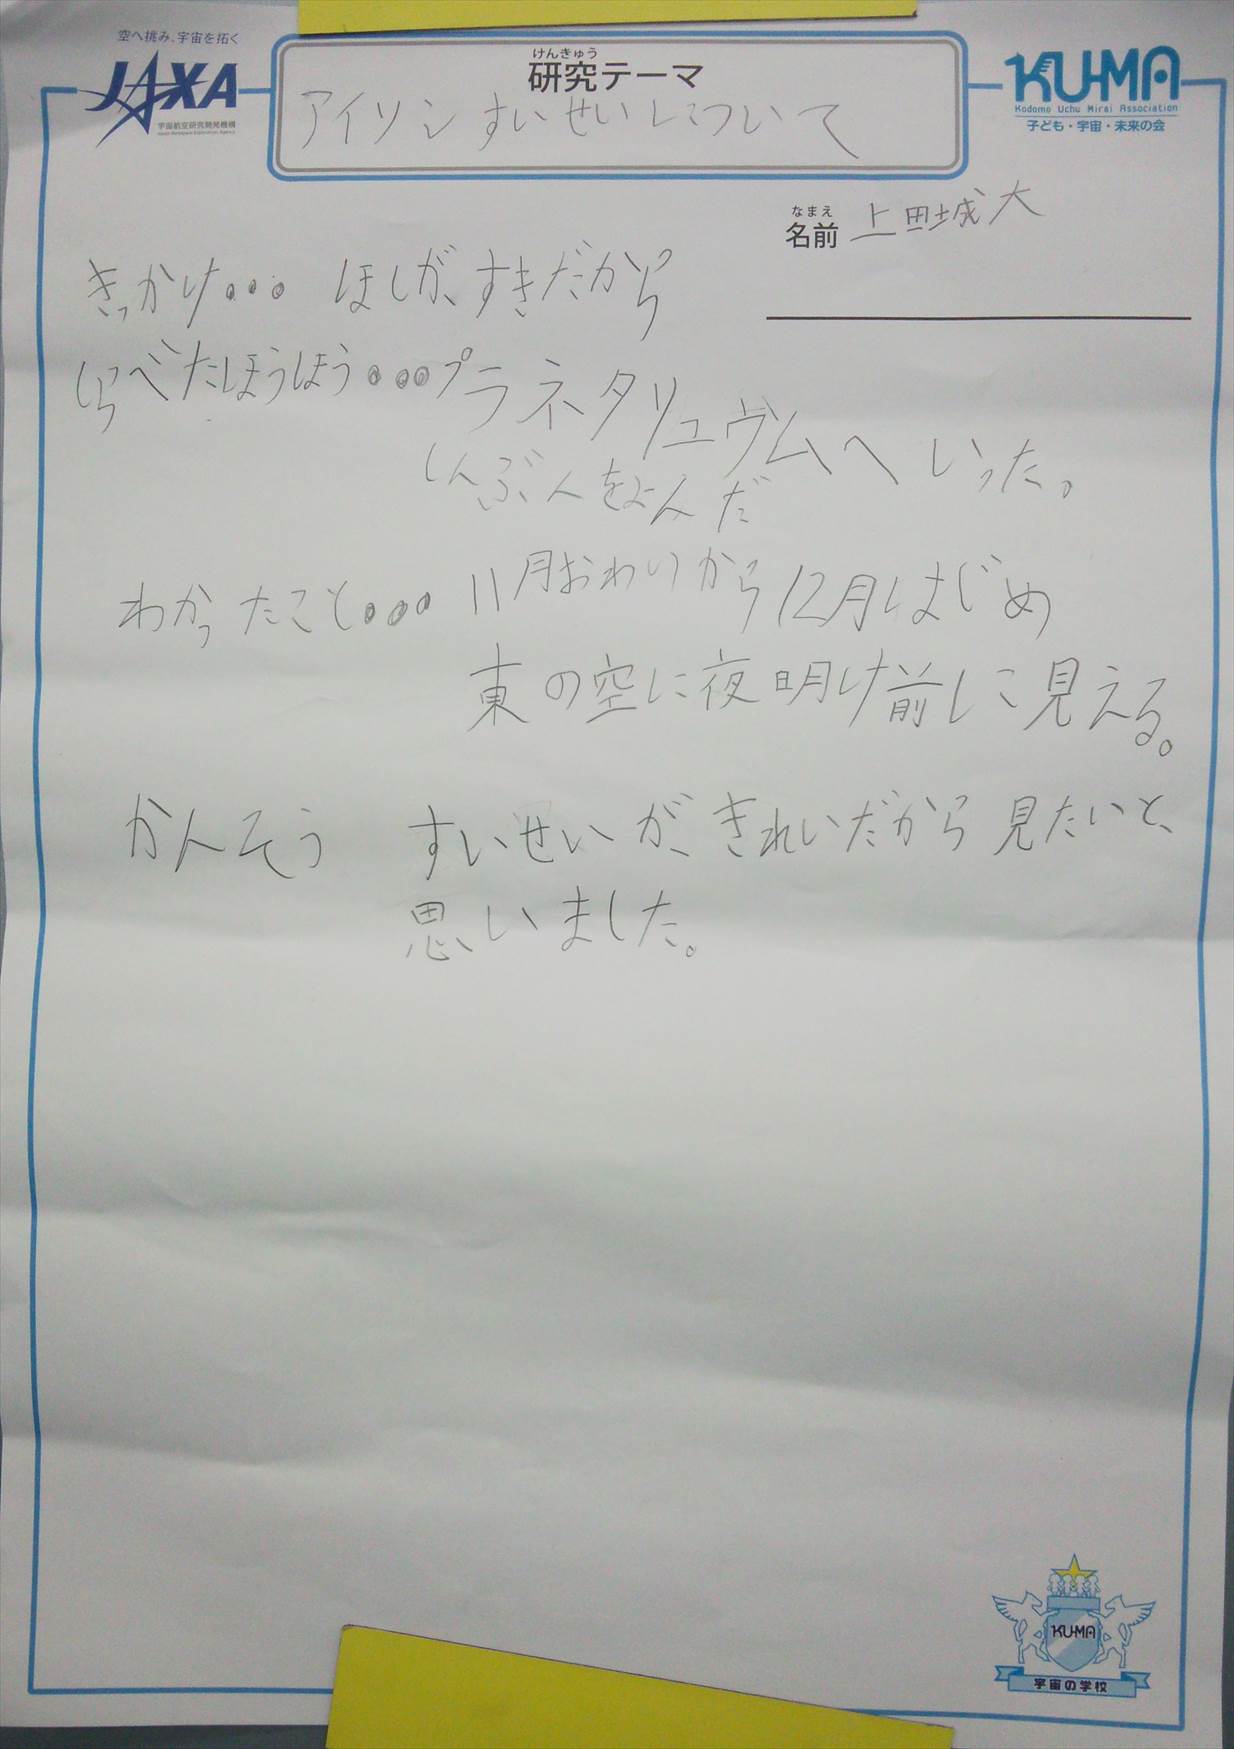 空へ挑み、宇宙を拓く
JAXA
宇宙航空研究開発機構
Japan Aerospace Exploration Agency
けんきゅう
研究テーマ
アイソンすいせいについて
KU-MA
Kodomo Uchu Mirai Association
子ども・宇宙・未来の会
なまえ
名前 上田城大
きっかけ... ほしが、すきだから
しらべたほうほう...プラネタリュヴムへいった。
しんぶんをよんだ
わかったこと... 11月おわりから12月はじめ
東の空に夜明け前に見える。
かんそう すいせいが、きれいだから見たいと、
思いました。
KU-MA
宇宙の学校